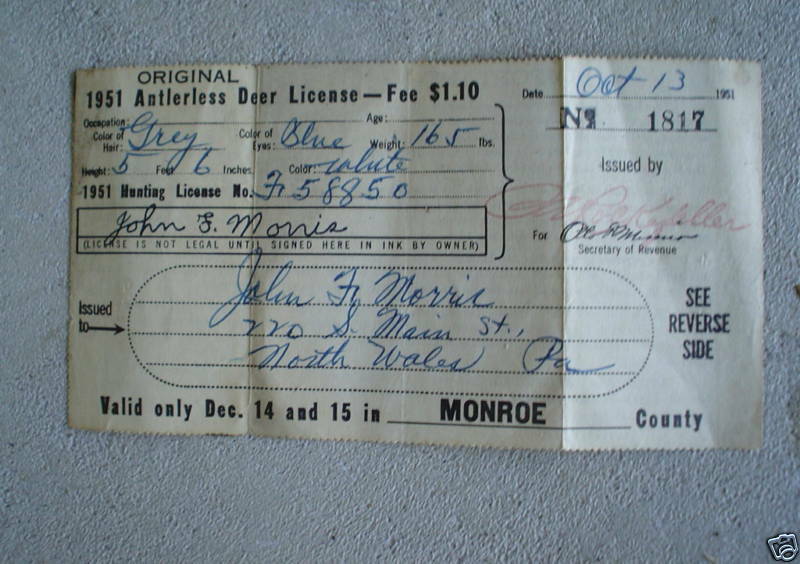 ORIGINAL
1951 Antlerless Deer License—Fee $1.10
Date Oct 13 1951
Occupation: Age:
Color of Hair: Grey Color of Eyes: Blue Weight: 165 lbs.
Nº 1817
Height: 5 Feet 6 Inches. Color: White
1951 Hunting License No. F 58850
Issued by
John F. Morris
(LICENSE IS NOT LEGAL UNTIL SIGNED HERE IN INK BY OWNER)
For
Secretary of Revenue
Issued to
John F. Morris
220 S. Main St.,
North Wales Pa
SEE
REVERSE
SIDE
Valid only Dec. 14 and 15 in MONROE County